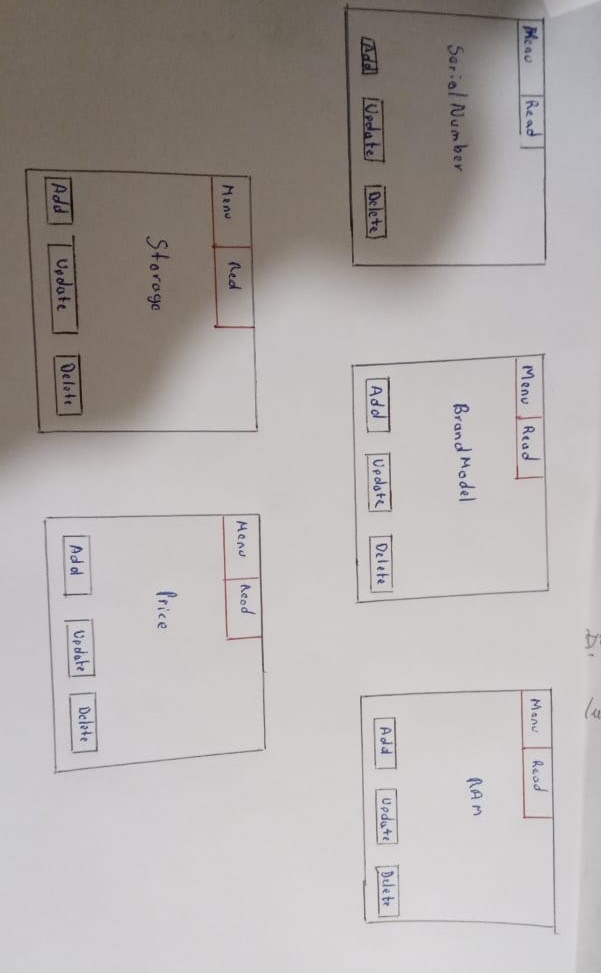 Menu Read
Serial Number
Add Update Delete
Menu Read
Brand Model
Add Update Delete
Menu Read
RAM
Add Update Delete
Menu Red
Storage
Add Update Delete
Menu Read
Price
Add Update Delete